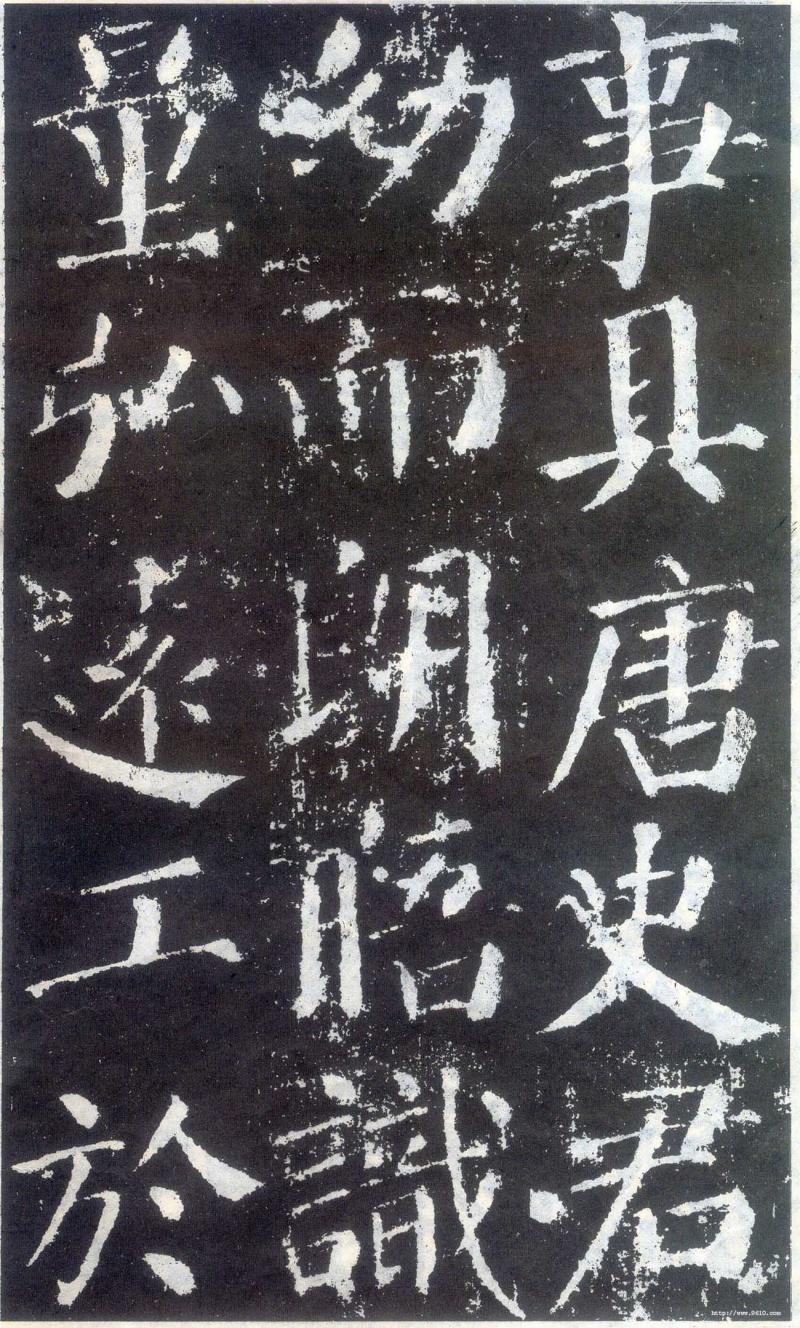 事具唐史君
幼而朗晤識
量弘遠工於
http://www.9610.com